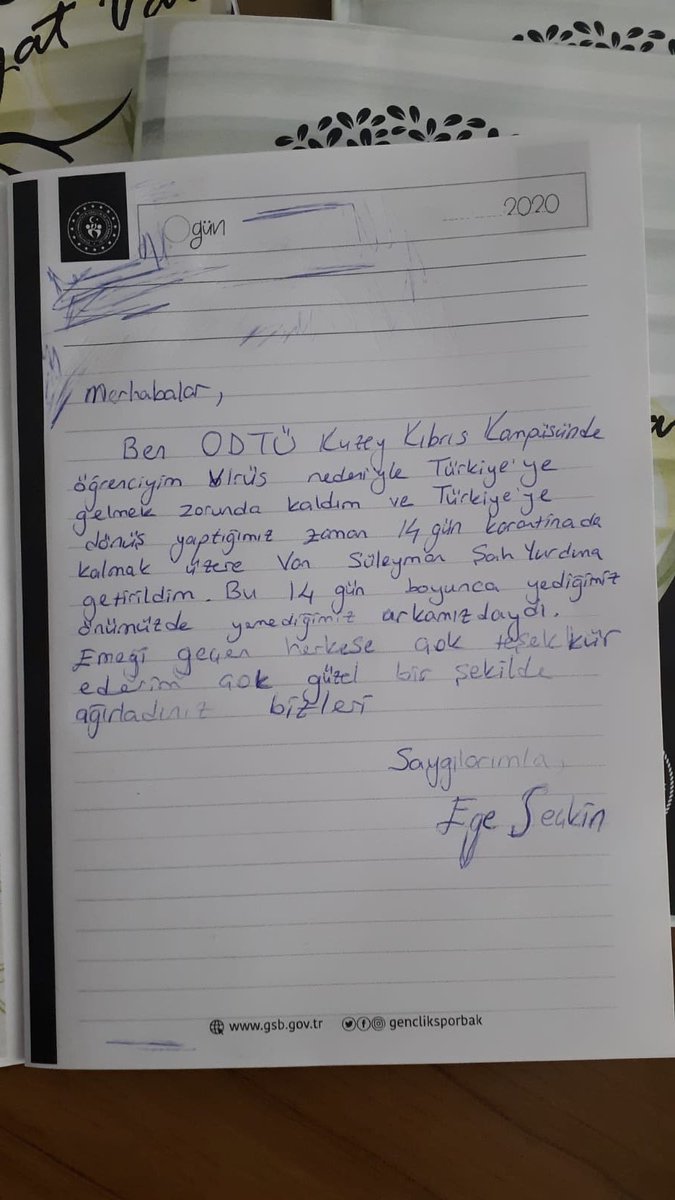 gün
2020
Merhabalar,
Ben ODTÜ Kuzey Kıbrıs Kampüsünde
öğrenciyim Virüs nedeniyle Türkiye'ye
gelmek zorunda kaldım ve Türkiye'ye
dönüş yaptığımız zaman 14 gün karantinada
kalmak üzere Van Süleyman Şah Yurduna
getirildim. Bu 14 gün boyunca yediğimiz
önümüzde yenediğimiz arkamızdaydı.
Emeği geçen herkese çok teşekkür
ederim çok güzel bir şekilde
ağırladınız bizleri
Saygılarımla,
Ege Seçkin
www.gsb.gov.tr gencliksporbak